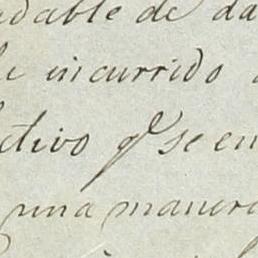 dable de da
e incurrido
ctivo qe se en
una manera